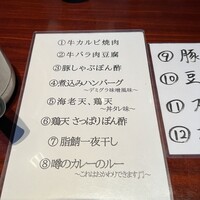 ①牛カルビ焼肉
②牛バラ肉豆腐
③豚しゃぶぽん酢
④煮込みハンバーグ
～デミグラ味噌風味～
⑤海老天、鶏天
～丼タレ味～
⑥鶏天 さっぱりぽん酢
⑦脂鯖一夜干し
⑧噂のカレーのルー
～これはおかわりできます♪～
⑨豚
⑩豆
⑪
⑫